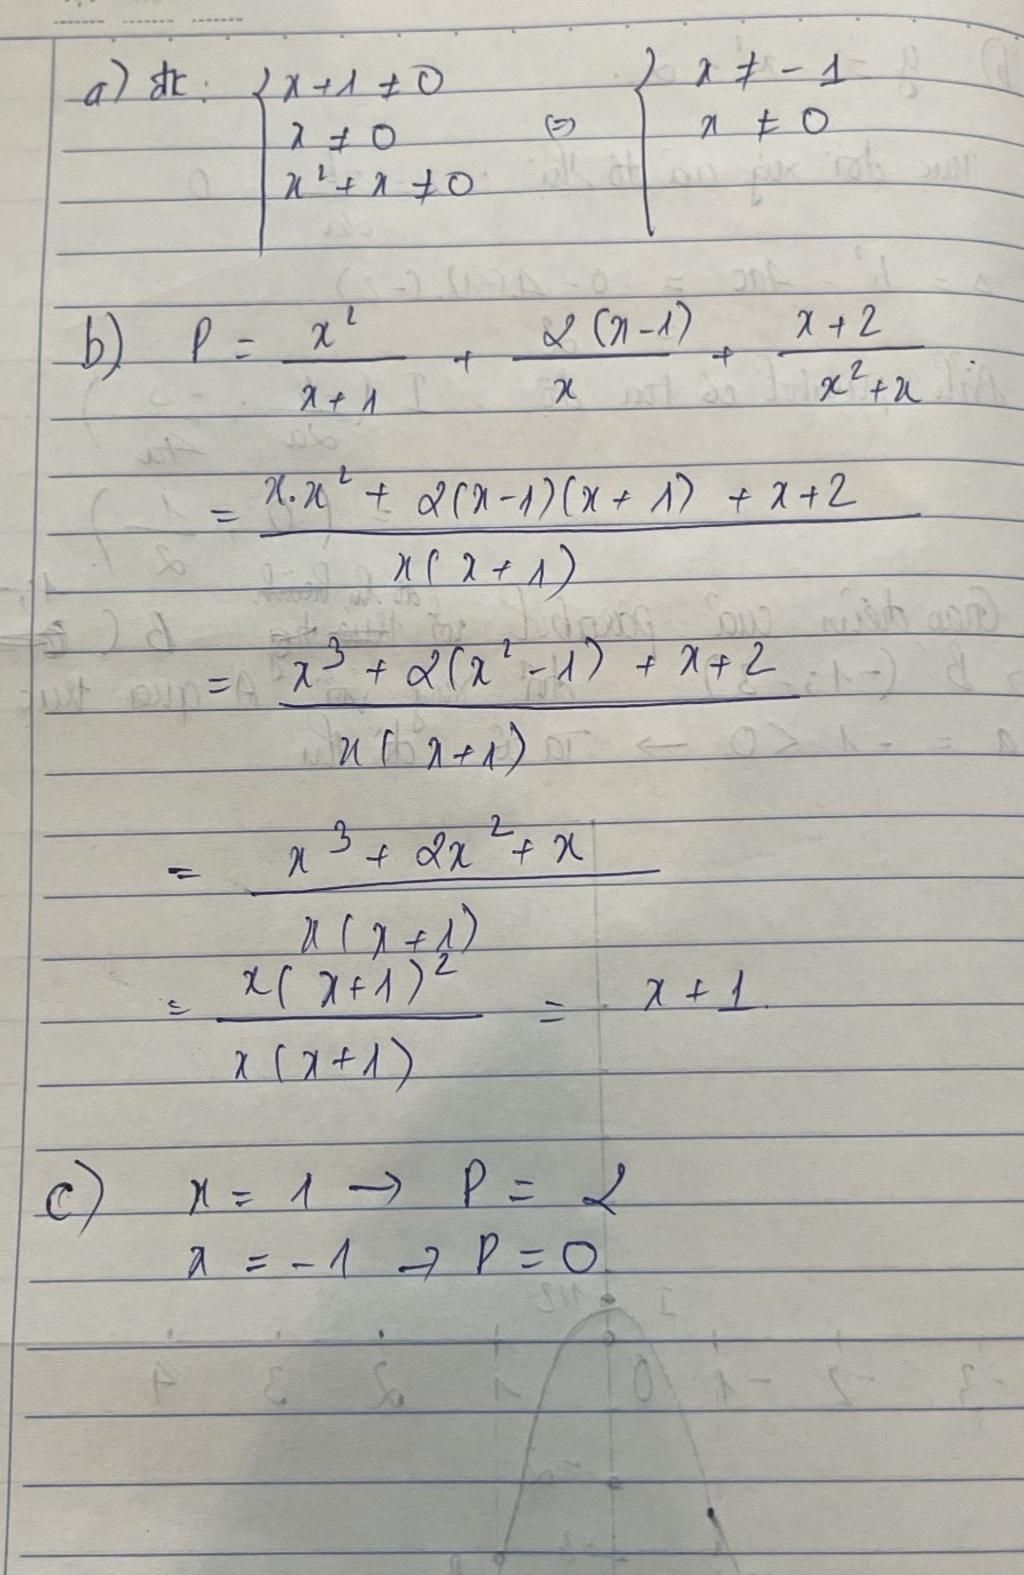 a) đk: { x+1 ≠ 0 { x ≠ -1
x ≠ 0 (=) x ≠ 0
x² + x ≠ 0
b) P = x²/(x+1) + 2(x-1)/x + (x+2)/(x²+x)
= (x.x² + 2(x-1)(x+1) + x+2)/(x(x+1))
= (x³ + 2(x²-1) + x+2)/(x(x+1))
= (x³ + 2x² + x)/(x(x+1))
= (x(x+1)²)/(x(x+1)) = x+1
c) x = 1 → P = 2
x = -1 → P = 0